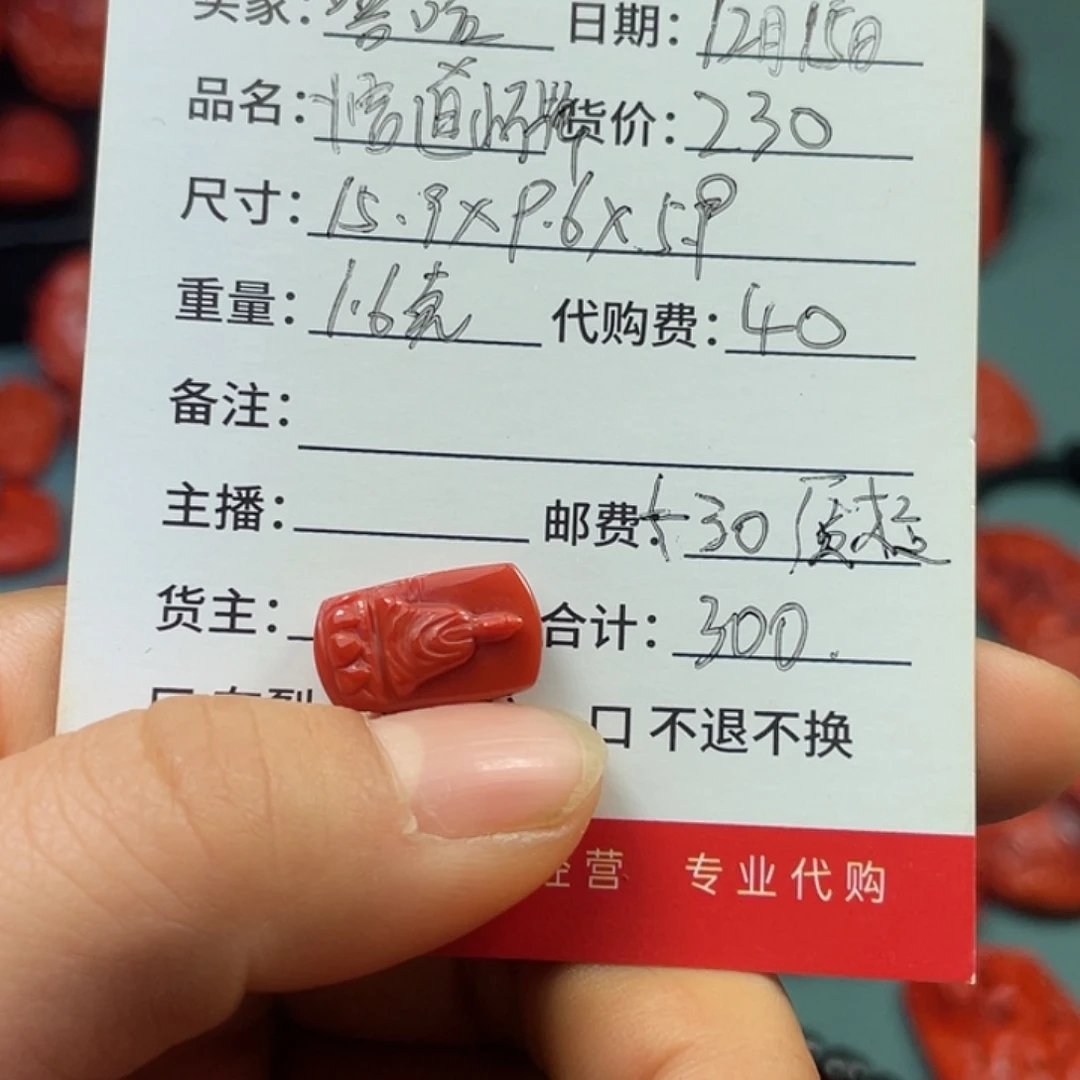 卖家： 日期：12月15日
品名：悟道 牌 货价：230
尺寸：15.9×9.6×5.9
重量：1.6克 代购费：40
备注：
主播： 邮费：+30 质检
货主： 合计：300
口 不退不换
经营 专业代购